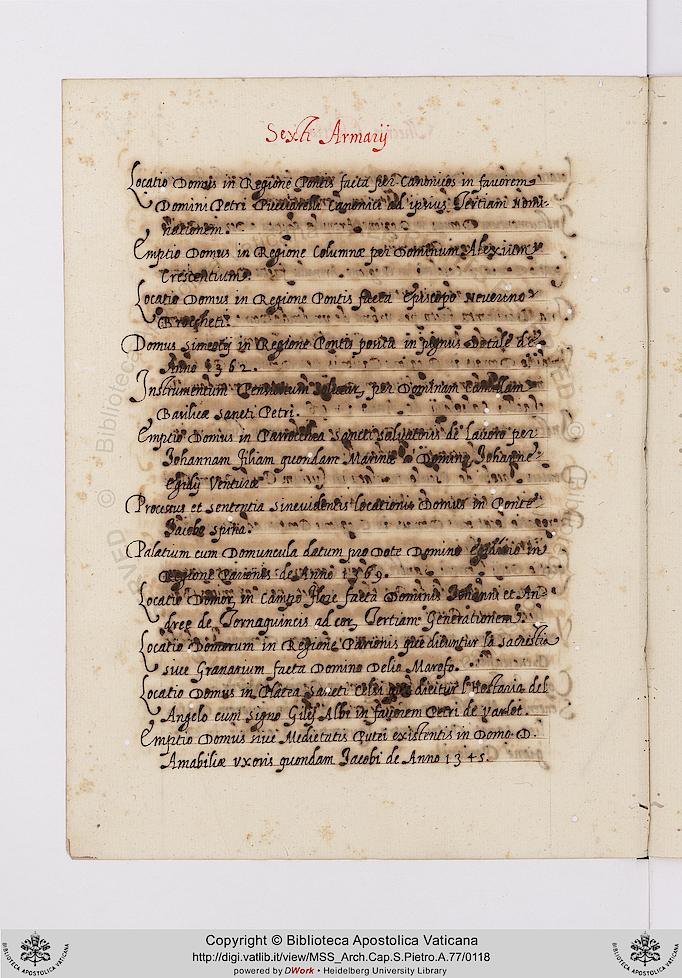 Sexti Armarij
Locatio Domus in Regione Pontis facta per Canonicos in fauorem
Domini Petri Canonici ad ipsius Tertiam Nomi-
nationem.
Emptio Domus in Regione Columnæ per Dominum
Crescentium.
Locatio Domus in Regione Pontis facta Episcopo
Brocheti.
Domus in Regione Pontis posita in pignus Dotale de
Anno 1362.
Instrumentum per Dominam
Basilicæ Sancti Petri.
Emptio Domus in Sancti Saluatoris de Lauoro per
Johannam filiam quondam
Egidij Venturæ
Processus et sententia locationis Domus in Ponte
Jacobo Spina.
Palatium cum Domuncula datum pro Dote Domino in
Regione Parionis de Anno 1369.
Locatio in Campo facta Dominis Johanni et An-
dreę de Tornaquincis ad Tertiam Generationem.
Locatio Domorum in Regione Parionis quę dicuntur la Sacrestia
siue Granarium facta Domino Delio
Locatio Domus in Platea Sancti Celsi dicitur l'Hostaria del
Angelo cum signo in fauorem Petri de
Emptio Domus siue Medietatis Putei existentis in Domo D.
Amabiliæ vxoris quondam Jacobi de Anno 1345.
Copyright © Biblioteca Apostolica Vaticana
http://digi.vatlib.it/view/MSS_Arch.Cap.S.Pietro.A.77/0118
powered by DWork • Heidelberg University Library